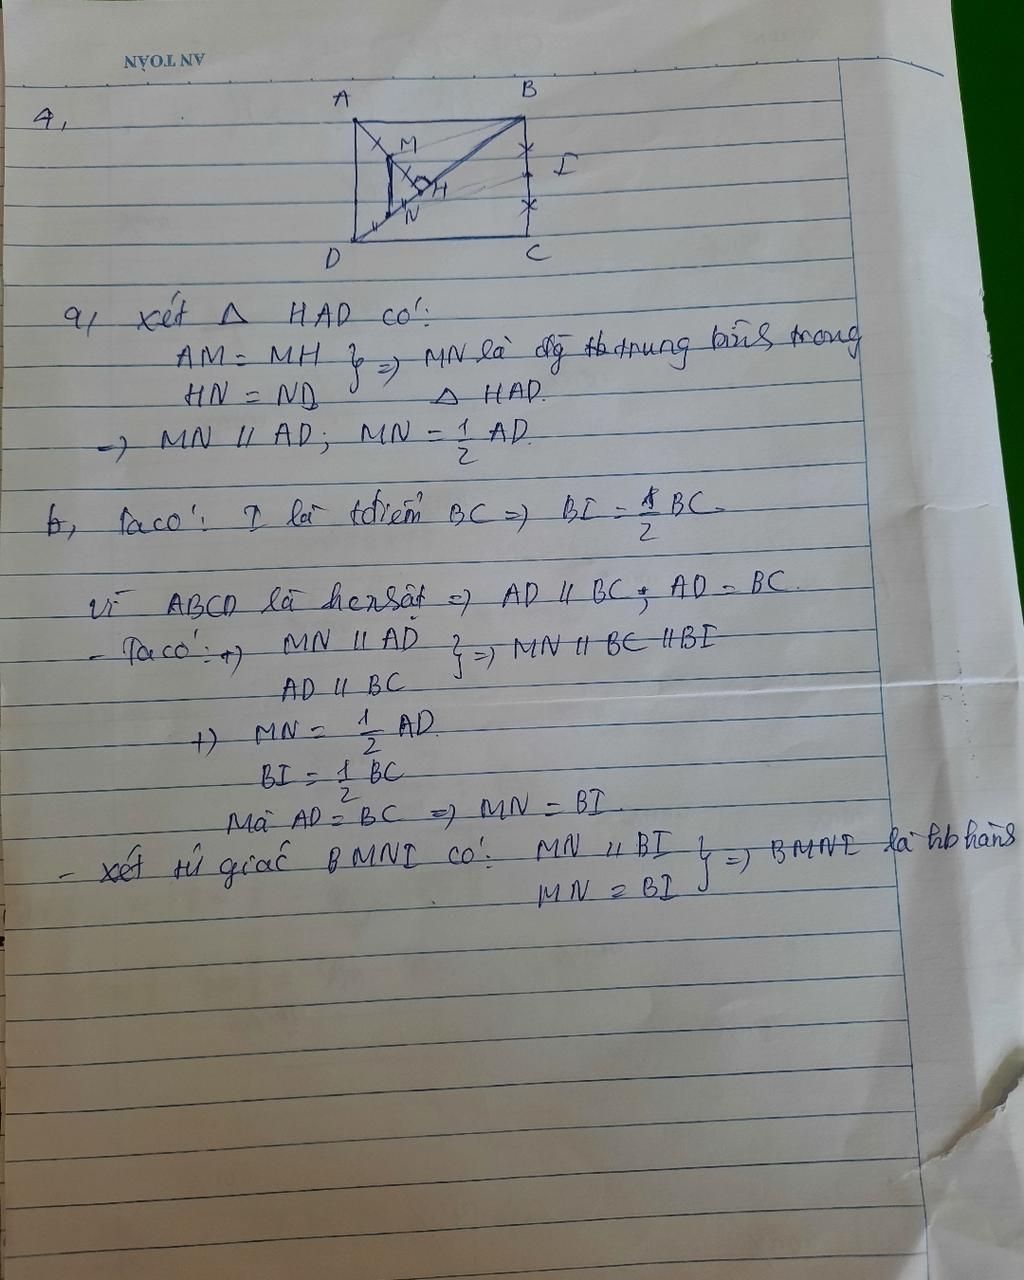 AN TOÀN
4,
A B
M
H I
N
D C
a, xét △ HAD có:
AM = MH } => MN là đg tb trung bình trong
HN = ND △ HAD.
=> MN // AD; MN = 1/2 AD.
b, Ta có: I là tđiểm BC => BI = 1/2 BC.
Vì ABCD là hcnhật => AD // BC; AD = BC.
- Ta có: +) MN // AD } => MN // BC // BI
AD // BC
+) MN = 1/2 AD.
BI = 1/2 BC
Mà AD = BC => MN = BI.
- xét tứ giác BMNI có: MN // BI } => BMNI là hb hành
MN = BI